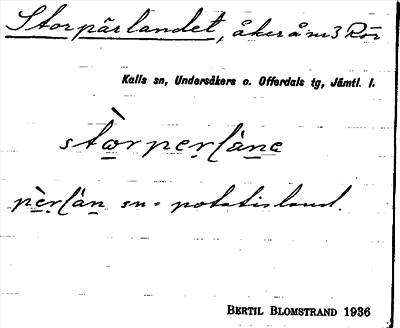 Storpärlandet, åker å nr 3 Rör
Kalls sn, Undersåkers o. Offerdals tg, Jämtl. l.
stworpẹrḷàṇe
pẹ̀rḷàṇ sn = potatisland.
BERTIL BLOMSTRAND 1936